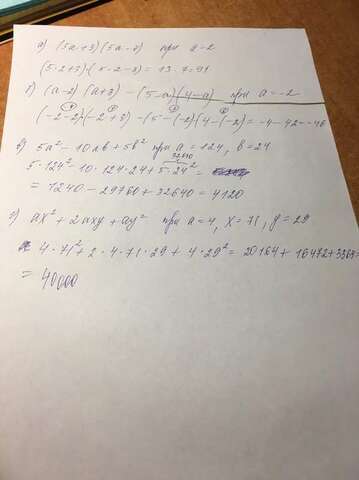 а) (5a+3)(5a-3) при a=2
(5·2+3)·(5·2-3)=13·7=91
б) (a-2)(a+3)-(5-a)(4-a) при a=-2
(-2-2)·(-2+3)-(5-(-2)(4-(-2)=-4-42=-46
в) 5a²-10ab+5b² при a=124, b=24
32640
5·124²-10·124·24+5·24²=
=1240-29760+32640=4120
г) ax²+2axy+ay² при a=4, x=71, y=29
4·71²+2·4·71·29+4·29²=20164+16472+3364=
=40000